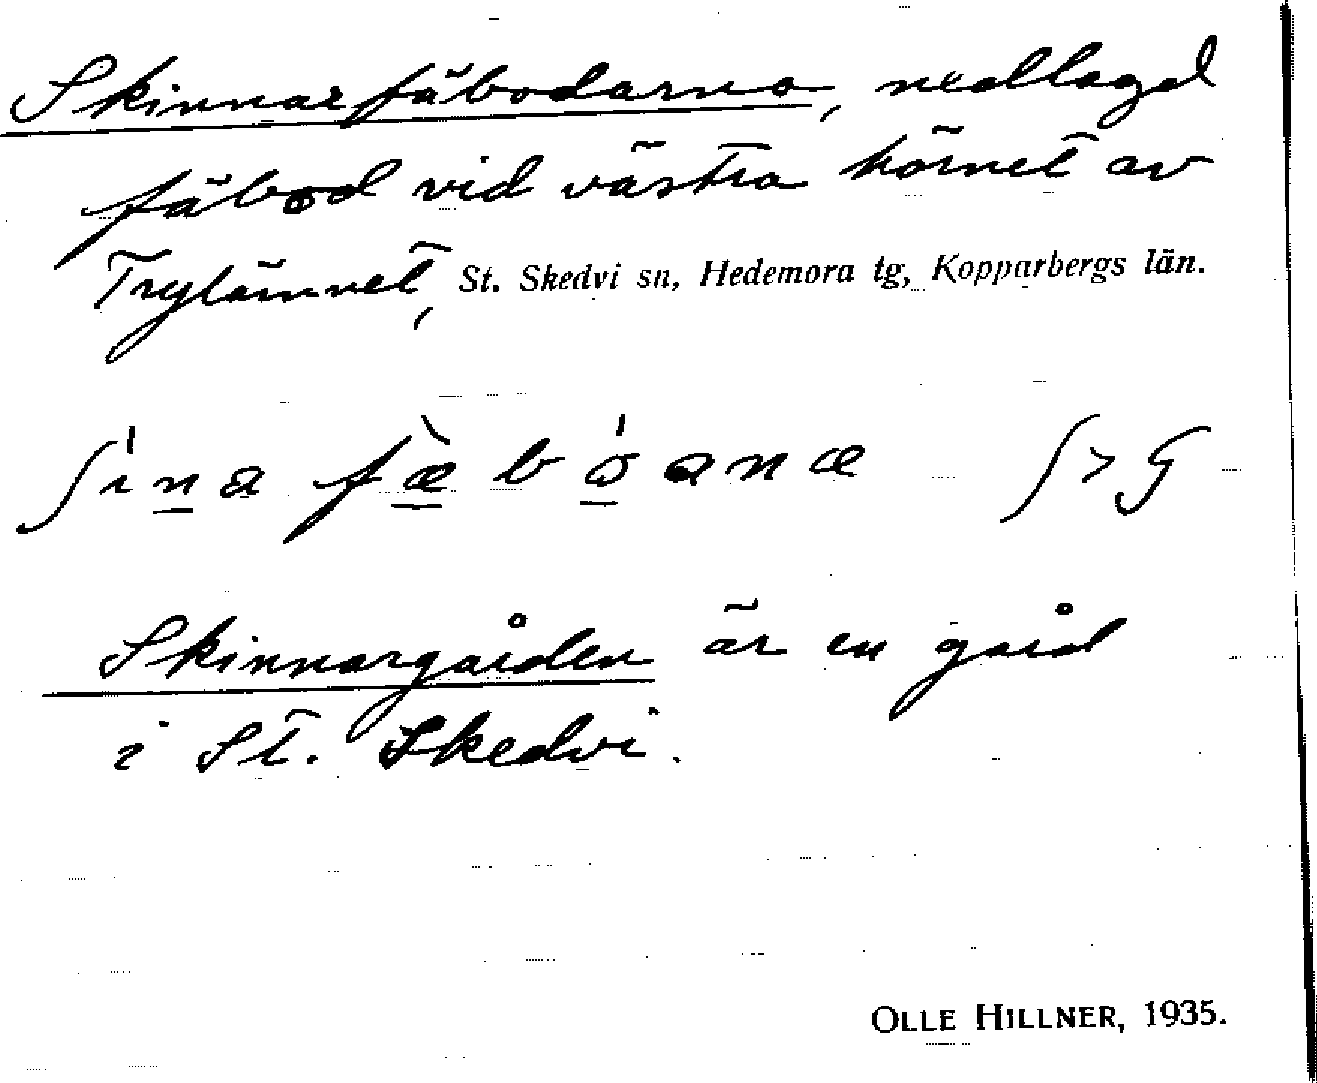 Skinnarfäbodarna, nedlagd
fäbod vid västra hörnet av
Trytärnet, St. Skedvi sn, Hedemora tg, Kopparbergs län.
ʃìna fæ̀bóanæ ʃ > ʕ
Skinnargården är en gård
i St. Skedvi.
OLLE HILLNER, 1935.